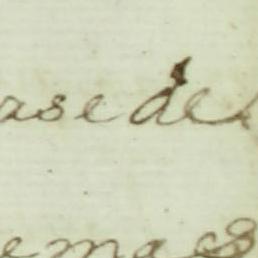 ase de
emas